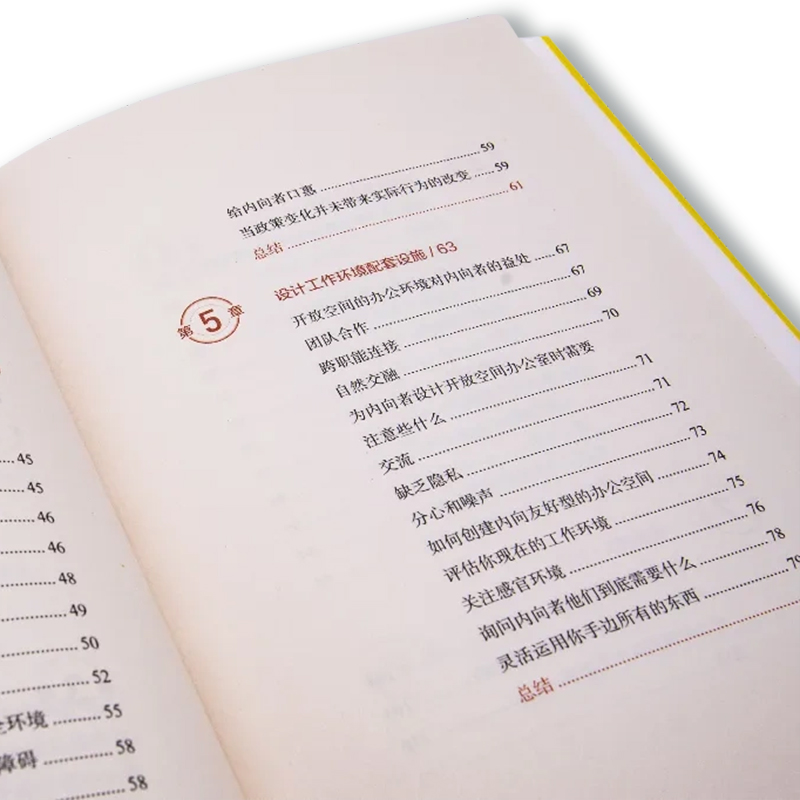 45
45
46
46
48
49
50
52
环境 55
障碍 58
58
给内向者口惠 59
当政策变化并未带来实际行为的改变 59
总结 61
第5章 设计工作环境配套设施 / 63
开放空间的办公环境对内向者的益处 67
团队合作 67
跨职能连接 69
自然交融 70
为内向者设计开放空间办公室时需要
注意些什么 71
交流 71
缺乏隐私 72
分心和噪声 73
如何创建内向友好型的办公空间 74
评估你现在的工作环境 75
关注感官环境 76
询问内向者他们到底需要什么 78
灵活运用你手边所有的东西 79
总结